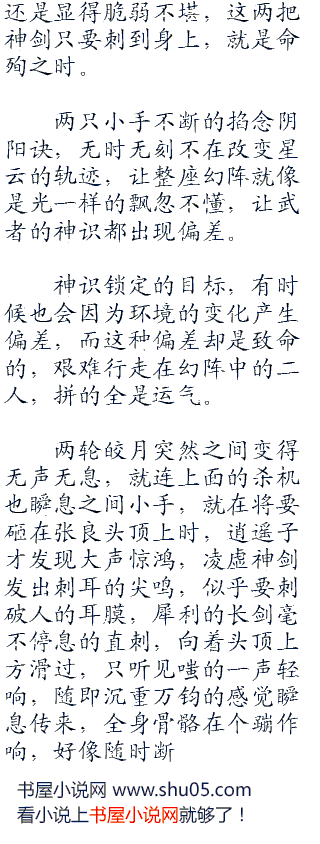 还是显得脆弱不堪，这两把
神剑只要刺到身上，就是命
殉之时。
两只小手不断的掐念阴
阳诀，无时无刻不在改变星
云的轨迹，让整座幻阵就像
是光一样的飘忽不懂，让武
者的神识都出现偏差。
神识锁定的目标，有时
候也会因为环境的变化产生
偏差，而这种偏差却是致命
的，艰难行走在幻阵中的二
人，拼的全是运气。
两轮皎月突然之间变得
无声无息，就连上面的杀机
也瞬息之间小手，就在将要
砸在张良头顶上时，逍遥子
才发现大声惊鸿，凌虚神剑
发出刺耳的尖鸣，似乎要刺
破人的耳膜，犀利的长剑毫
不停息的直刺，向着头顶上
方滑过，只听见嗤的一声轻
响，随即沉重万钧的感觉瞬
息传来，全身骨骼在个蹦作
响，好像随时断
书屋小说网 www.shu05.com
看小说上书屋小说网就够了！